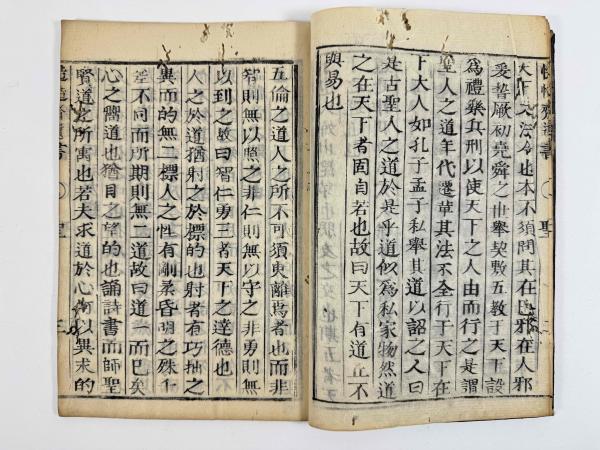 大▢大法令也本不須問其在己邪在人邪
爰昔厥初堯舜之世舉契敷五教于天下設
為禮樂兵刑以使天下之人由而行之是謂
聖人之道年代遷革其法不全行于天下在
下大人如孔子孟子私舉其道以詔之人曰
是古聖人之道於是乎道似為私家物然道
之在天下者固自若也故曰天下有道丘不
與易也
五倫之道人之所不可須臾離焉者也而非
智則無以照之非仁則無以守之非勇則無
以到之故曰智仁勇三者天下之達德也
人之於道猶射之於標的也射者有巧拙之
異而的無二標人之性有剛柔昏明之殊
差不同而所期則無二道故曰道一而已矣
心之嚮道也猶目之望的也誦詩書而師聖
賢道之所寓也若夫求道於心何以異求的